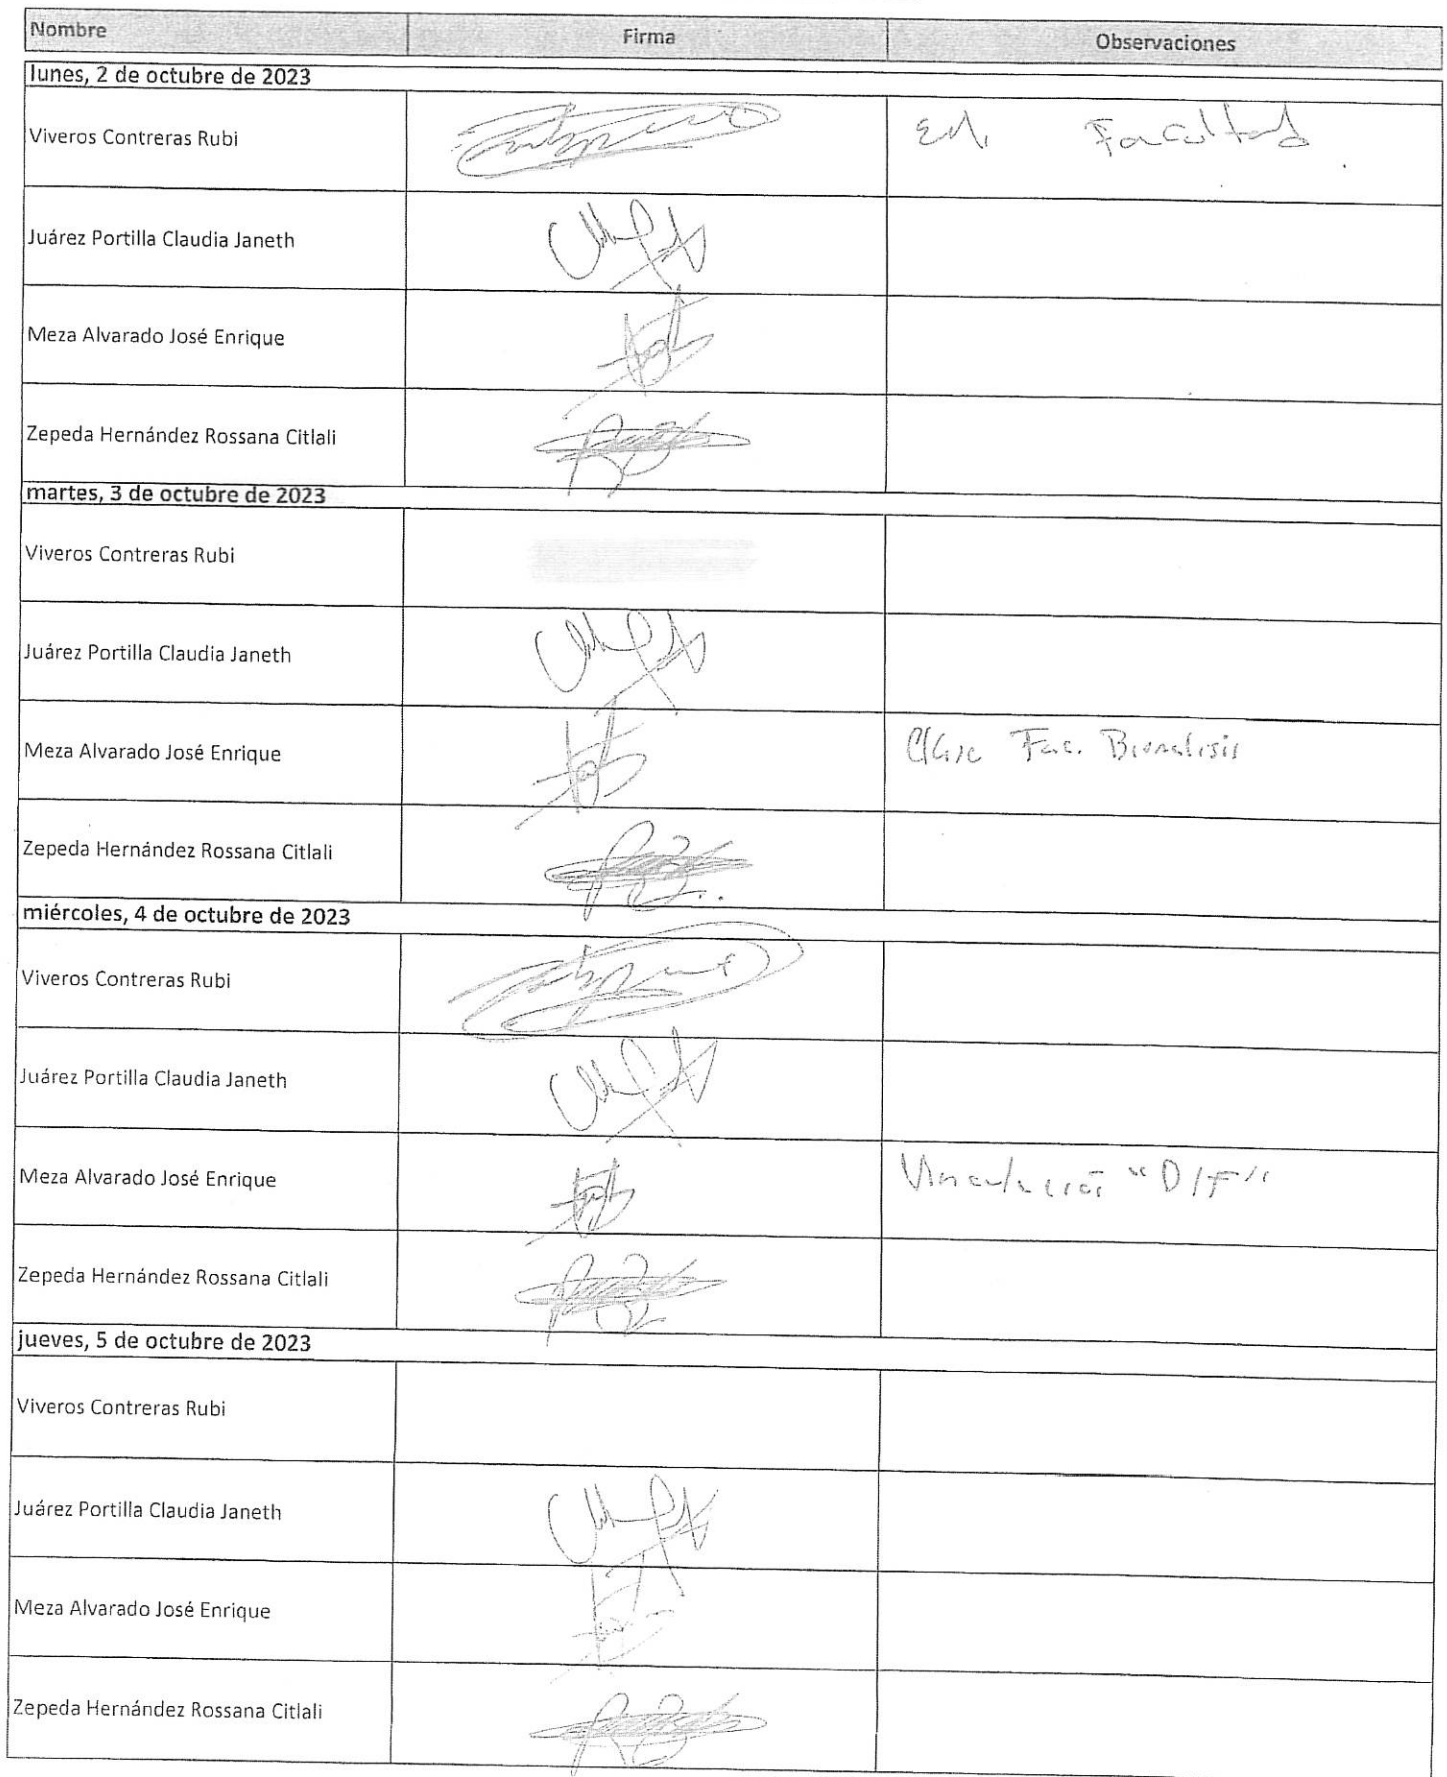 Nombre Firma Observaciones
lunes, 2 de octubre de 2023
Viveros Contreras Rubi Facultad
Juárez Portilla Claudia Janeth
Meza Alvarado José Enrique
Zepeda Hernández Rossana Citlali
martes, 3 de octubre de 2023
Viveros Contreras Rubi
Juárez Portilla Claudia Janeth
Meza Alvarado José Enrique Clase Fac. Bionalisis
Zepeda Hernández Rossana Citlali
miércoles, 4 de octubre de 2023
Viveros Contreras Rubi
Juárez Portilla Claudia Janeth
Meza Alvarado José Enrique Vinculación "DIF"
Zepeda Hernández Rossana Citlali
jueves, 5 de octubre de 2023
Viveros Contreras Rubi
Juárez Portilla Claudia Janeth
Meza Alvarado José Enrique
Zepeda Hernández Rossana Citlali